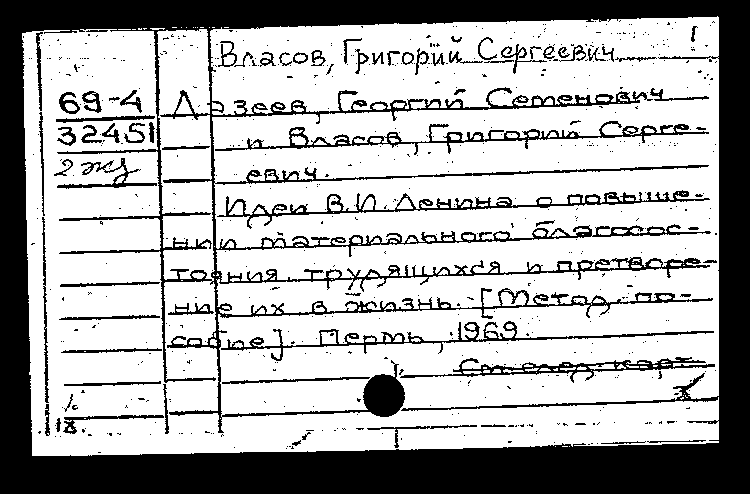 Власов, Григорий Сергеевич
69-4 Лазеев, Георгий Семенович
32451 и Власов, Григорий Серге-
2 экз евич.
Идеи В.И. Ленина о повыше-
нии материального благосос-
тояния трудящихся и претворе-
ние их в жизнь. [Метод. по-
собие]. Пермь, 1969.
См. след. карт.
18.